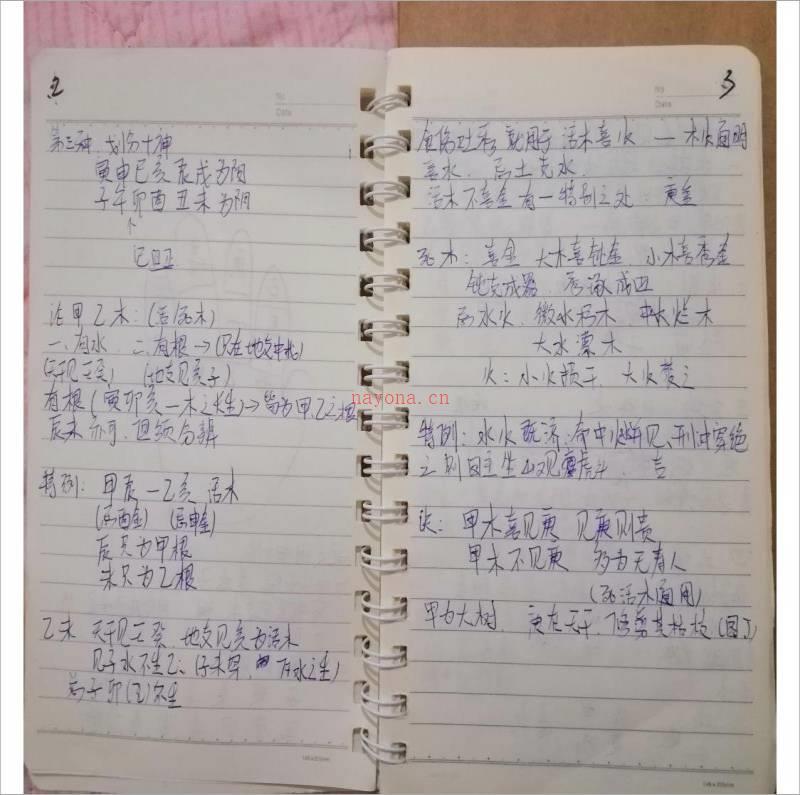 2
No
Date
第三种、划分十神
寅申巳亥辰戌为阳
子午卯酉丑未为阴
↑
记卫卫
论甲乙木:(活/死木)
一、有水、二、有根→(只在地支中找)
(天干见壬癸) (地支见亥子)
有根(寅卯亥—木之长生)→皆为甲乙之根
辰未亦可,但须分辨
特例: 甲辰—乙亥 活木
(忌酉金) (忌申金)
辰只为甲根
未只为乙根
乙木 天干见壬癸 地支见亥为活木
见子水不生乙、(子未穿、有水之生)
为子卯(乙)不生
148×205mm
No
Date
3
就用于 活木喜火 — 木火通明
喜水、忌土克水
活木不喜金有一特别之处 庚金
死木: 喜金 大木喜钝金 小木喜秀金
钝克成器
忌水火、微水朽木、中水烂木
大水漂木
火:小火损干、大火焚之
特例: 水火既济、命中火并见、刑冲穿绝
之则 吉
法: 甲木喜见庚 见庚则贵
甲木不见庚 多为无寿人
(死活木通用)
甲为大树 庚在天干、修剪其枯枝(图1)
148×205mm
nayona.cn